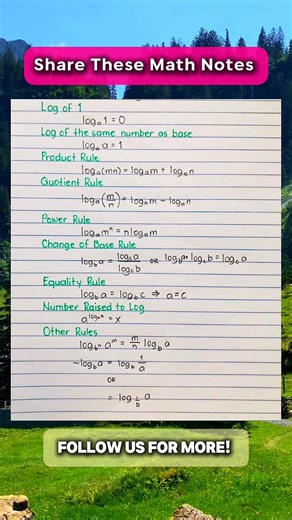 Share These Math Notes
Log of 1
logₐ1=0
Log of the same number as base
logₐa=1
Product Rule
logₐ(mn)=logₐm+logₐn
Quotient Rule
logₐ(m/n)=logₐm-logₐn
Power Rule
logₐmⁿ=nlogₐm
Change of Base Rule
log_b a = log_c a / log_c b OR log_b a • log_c b = log_c a
Equality Rule
log_b a = log_b c ⇒ a=c
Number Raised to Log
a^(log_a x) = x
Other Rules
log_(bⁿ) aᵐ = m/n log_b a
-log_b a = log_b 1/a
OR
= log_(1/b) a
FOLLOW US FOR MORE!